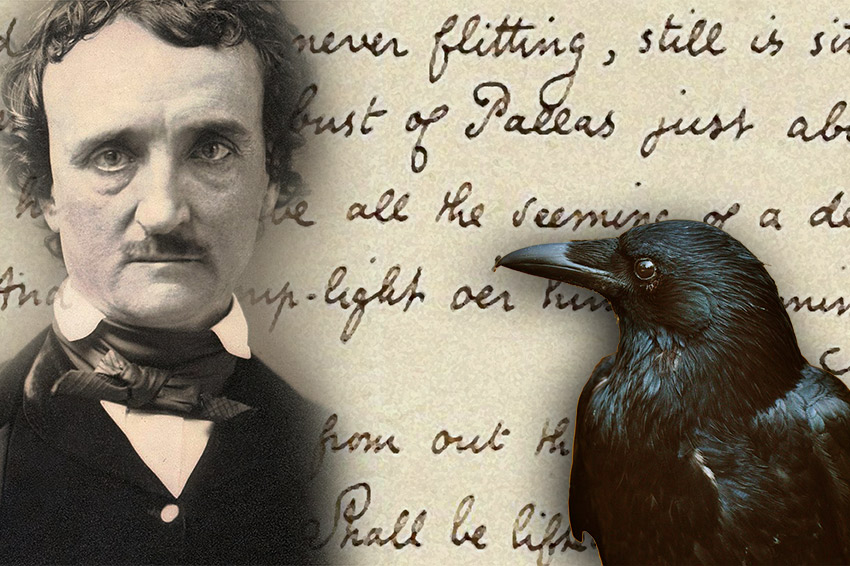 never flitting, still is
bust of Pallas just
all the seeming of a
And mp-light oer
from out
Shall be